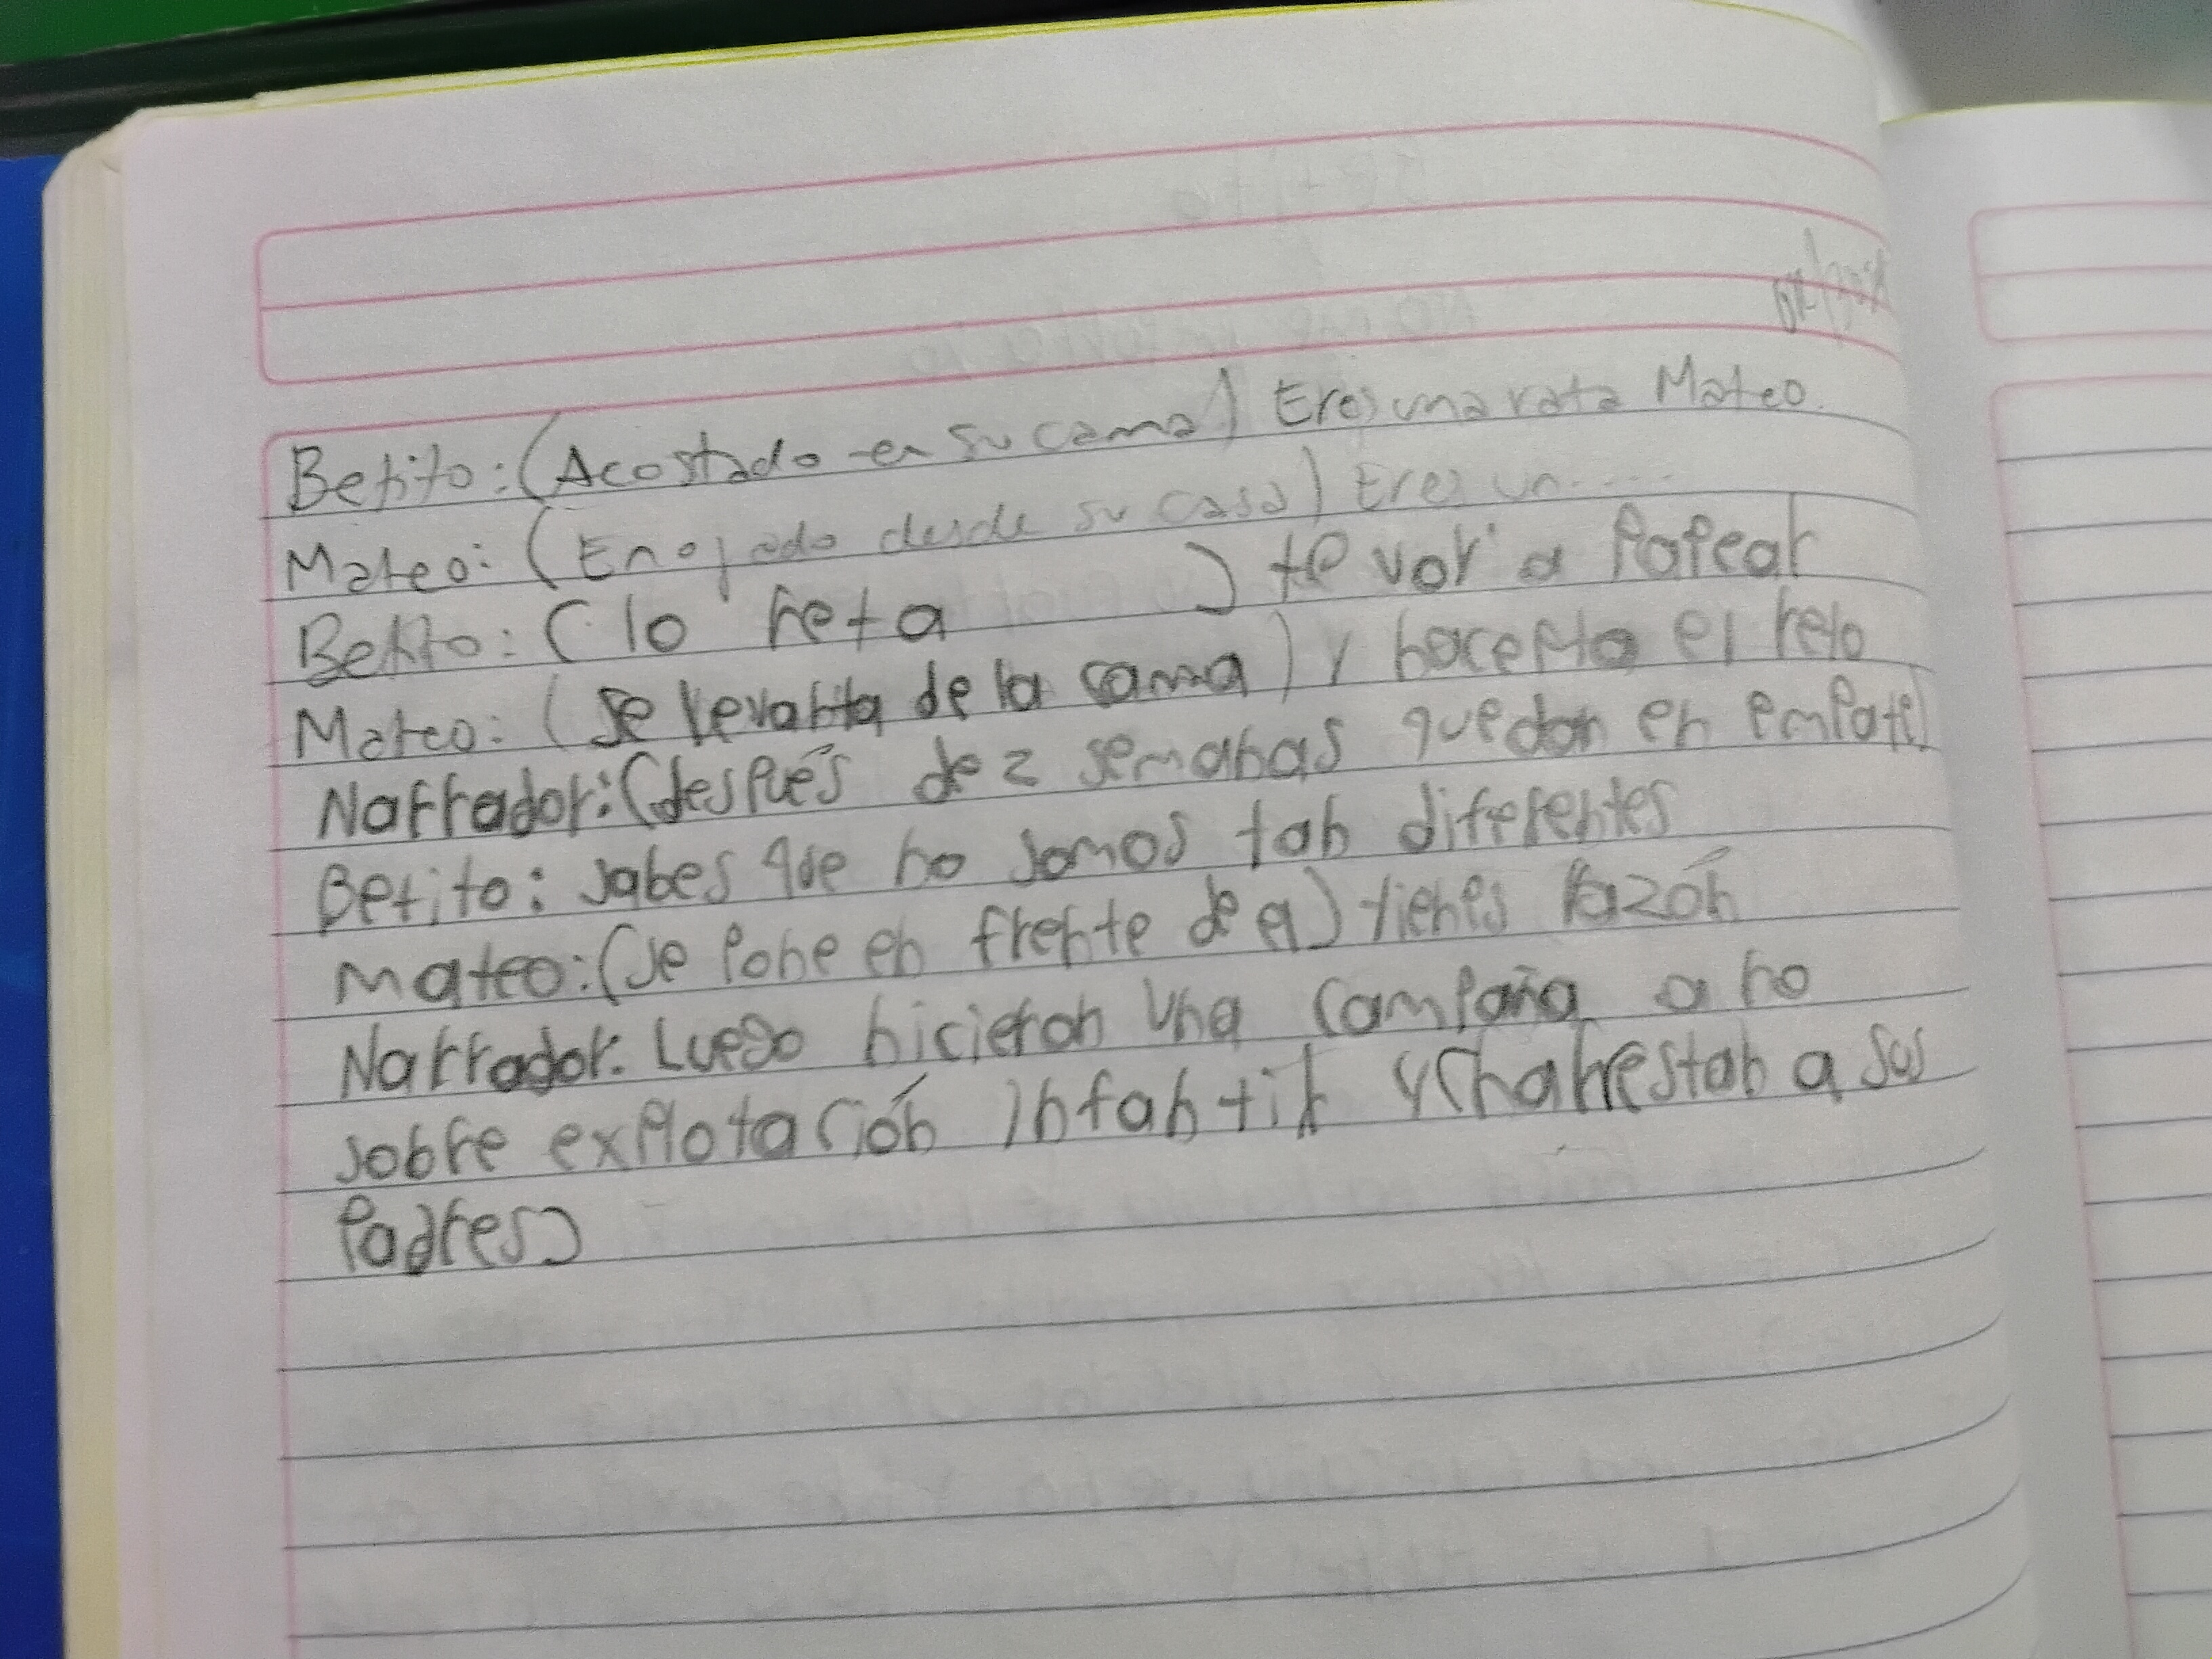 Betito: (Acostado en su cama) Eres una rata Mateo.
Mateo: (Enojado desde su casa) Eres un.....
Betito: (lo reta ) te voy a
Mateo: (se levanta de la cama) y el reto
Narrador: (después de 2 semanas quedan en empate)
Betito: sabes que no somos tan diferentes
Mateo: (se pone en frente de el) tienes razón
Narrador: Luego hicieron una campaña a no
sobre explotación infantil a sus
Padres)